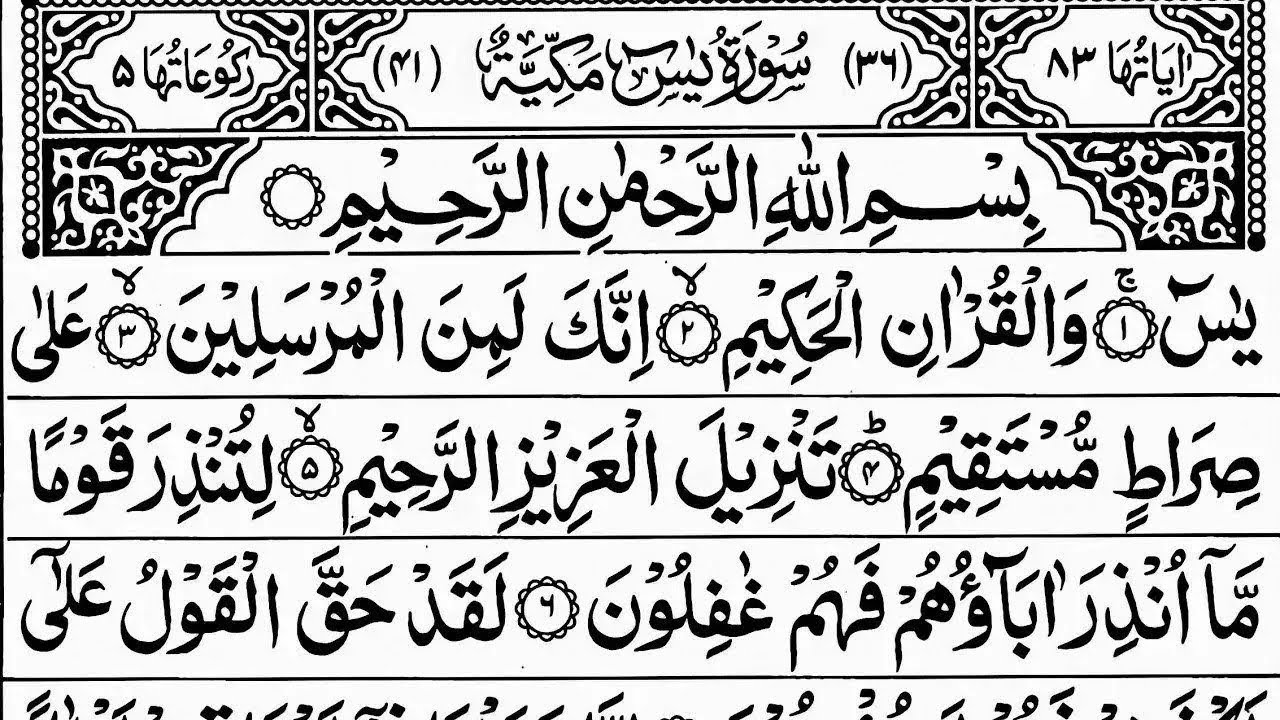 اٰيَاتُهَا ٨٣ (٣٦) سُوْرَةُ يٰسٓ مَكِّيَّةٌ (٤١) رُكُوْعَاتُهَا ۵
بِسْمِ اللّٰهِ الرَّحْمٰنِ الرَّحِيْمِ
يٰسٓ ۚ﴿١﴾ وَالْقُرْاٰنِ الْحَكِيْمِ ۙ﴿٢﴾ اِنَّكَ لَمِنَ الْمُرْسَلِيْنَ ۙ﴿٣﴾ عَلٰى
صِرَاطٍ مُّسْتَقِيْمٍ ؕ﴿۴﴾ تَنْزِيْلَ الْعَزِيْزِ الرَّحِيْمِ ۙ﴿۵﴾ لِتُنْذِرَ قَوْمًا
مَّاۤ اُنْذِرَ اٰبَآؤُهُمْ فَهُمْ غٰفِلُوْنَ ﴿۶﴾ لَقَدْ حَقَّ الْقَوْلُ عَلٰۤى